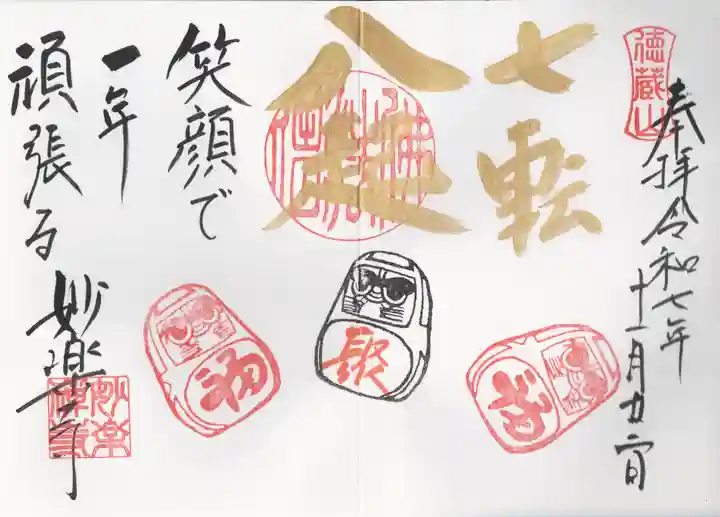 徳蔵山
奉拝 令和七年
十一月廿二日
七転
八起
笑顔で
一年
頑張る
妙楽寺
福
聚